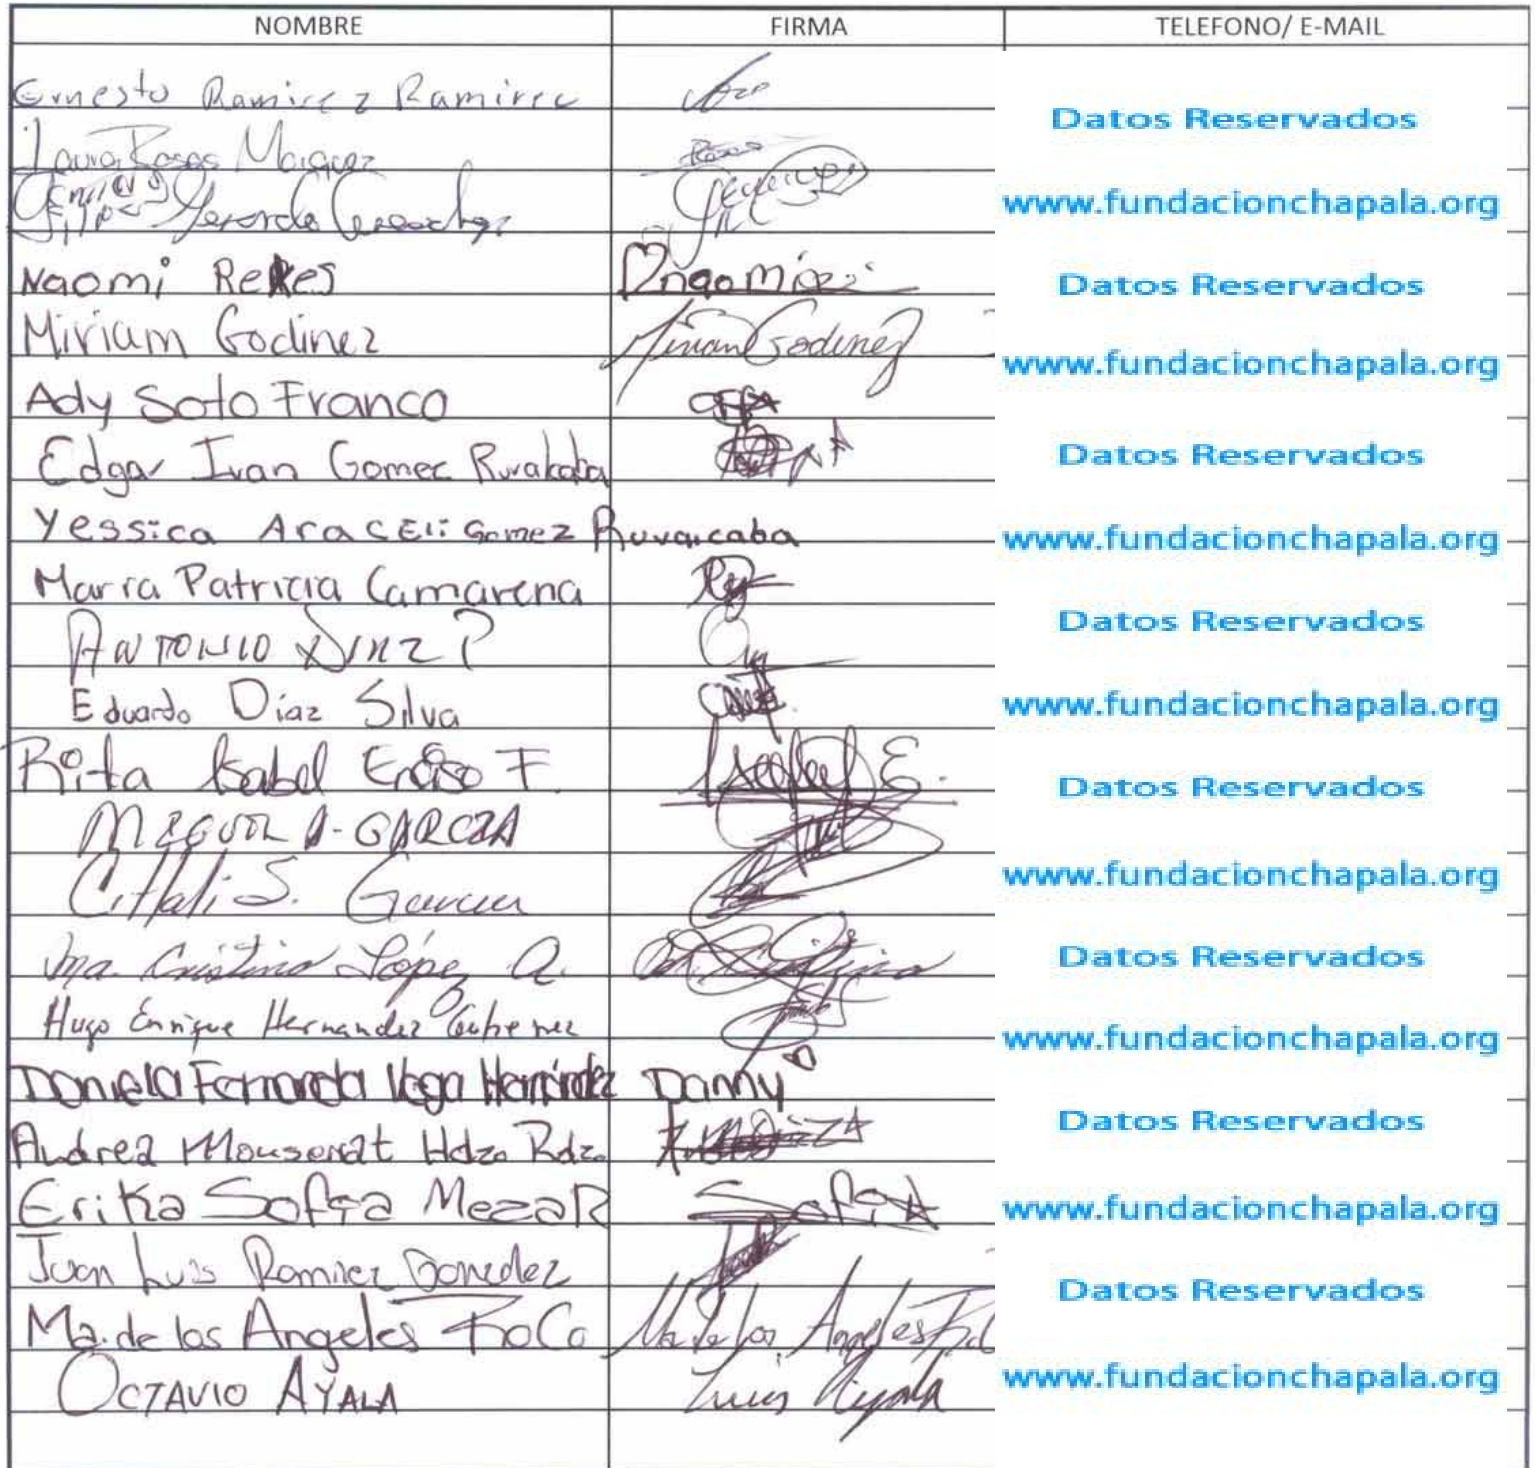 NOMBRE FIRMA TELEFONO/ E-MAIL
Ernesto Ramirez Ramirez
Datos Reservados
Laura Rosas Marquez Rosas
Gerardo
www.fundacionchapala.org
Naomi Reyes
Datos Reservados
Miriam Godinez Miriam Godinez
www.fundacionchapala.org
Ady Soto Franco
Edgar Ivan Gomez Ruvalcaba
Datos Reservados
Yessica Araceli Gomez Ruvalcaba
www.fundacionchapala.org
Maria Patricia Camarena
Datos Reservados
ANTONIO
Eduardo Diaz Silva
www.fundacionchapala.org
Rita Isabel Enciso F. Isabel E.
Datos Reservados
MIGUEL A. GARCIA
Citlali S. Garcia
www.fundacionchapala.org
Ma. Cristina López A.
Datos Reservados
Hugo Enrique Hernandez Gutierrez
www.fundacionchapala.org
Daniela Fernanda Vega Hernández Danny
Andrea Monserrat Hdzo Rdzo
Datos Reservados
Erika Sofía Meza R Sofia
www.fundacionchapala.org
Juan Luis Ramirez Gonzalez
Datos Reservados
Ma. de los Angeles RoCo Ma de los Angeles
OCTAVIO AYALA Ayala
www.fundacionchapala.org